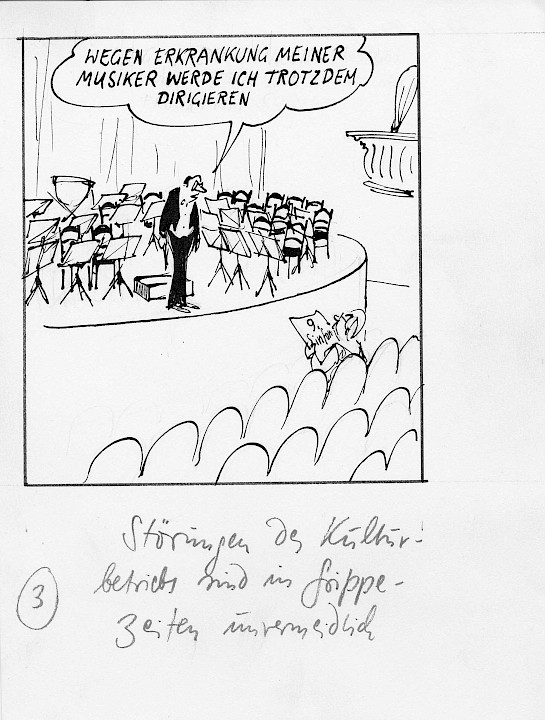 WEGEN ERKRANKUNG MEINER
MUSIKER WERDE ICH TROTZDEM
DIRIGIEREN
9.
Sinfon
Störungen des Kultur-
betriebs sind in Grippe-
zeiten unvermeidlich
3